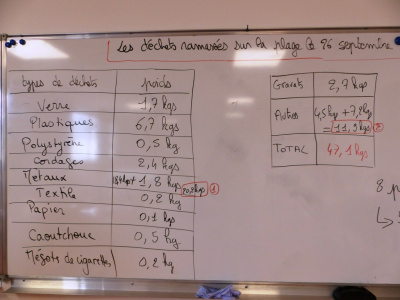 Les déchets ramassés sur la plage le 26 septembre
types de déchets poids
Verre 1,7 kgs
Plastiques 6,7 kgs
Polystyrène 0,5 kg
Cordages 2,4 kgs
Métaux 18,4 kgs + 1,8 kgs = 20,2 kgs ①
Textile 0,2 kg
Papier 0,1 kgs
Caoutchouc 0,5 kg
Mégots de cigarettes 0,2 kg
Gravats 2,7 kgs
Autres 4,5 kgs + 7,2 kgs
= 11,9 kgs ②
TOTAL 47,1 kgs
8 p